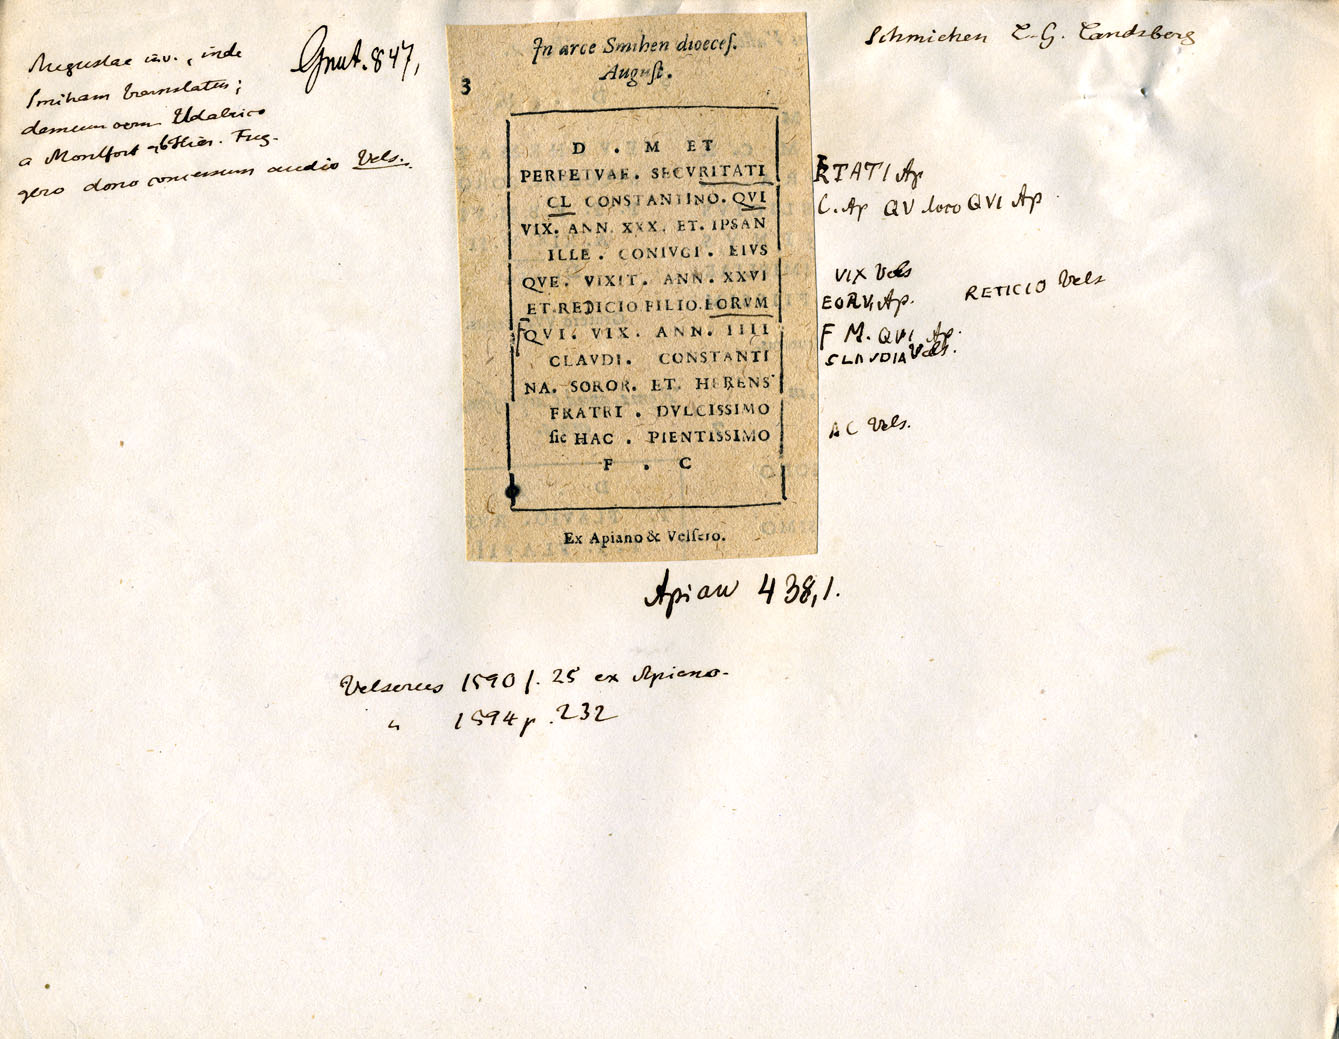 Augustae inv., inde
Smiham translatus;
demum vem Udalrico
a Montfort ab Hier. Fug-
gero dono concessum audio Vels.
Grut. 847,
Schmichen L. G. Landsberg
In arce Smihen diœces.
August.
3
D . M ET
PERPETVAE. SECVRITATI
CL CONSTANTINO. QVI
VIX. ANN. XXX. ET. IPSAN
ILLE . CONIVGI . EIVS
QVE. VIXIT. ANN. XXVI
ET REDICIO FILIO. EORVM
QVI. VIX. ANN. IIII
CLAVDI. CONSTANTI
NA. SOROR. ET. HERENS
FRATRI . DVLCISSIMO
sic HAC . PIENTISSIMO
F . C
Ex Apiano & Velsero.
RTATI Ap
C. Ap QV loco QVI Ap
VIX Vels
EORV, Ap. RETICIO Vels
F M. QVI Ap.
CLAVDIA Vels.
AC Vels.
Apian 438,1.
Velserus 1590 f. 25 ex Apiano.
" 1594 p. 232